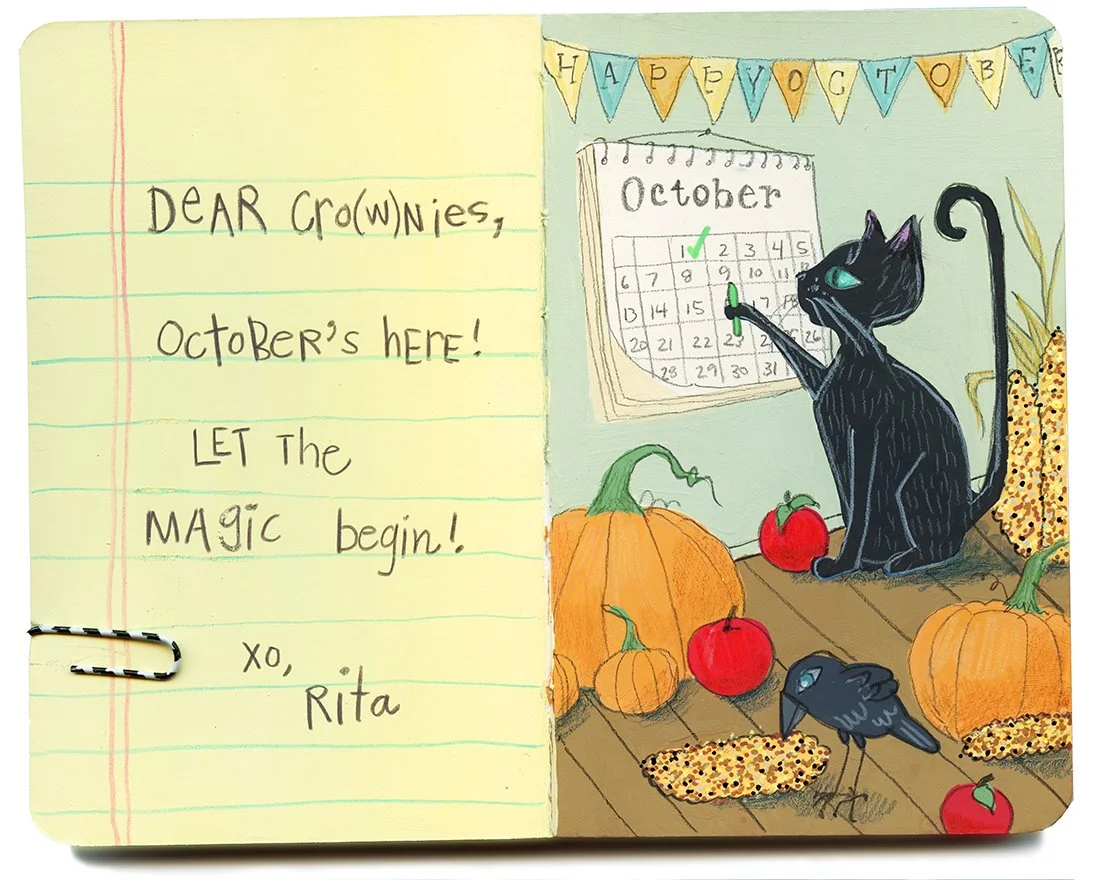 DeAR Cro(w)Nies,
OcToBER's hERE!
LET The
MAgic begin!
xo,
Rita
HAPPY OCTOBE
October
1 ✓ 2 3 4 5
6 7 8 9 10 11 12
13 14 15 17 18
20 21 22 23 26
28 29 30 31